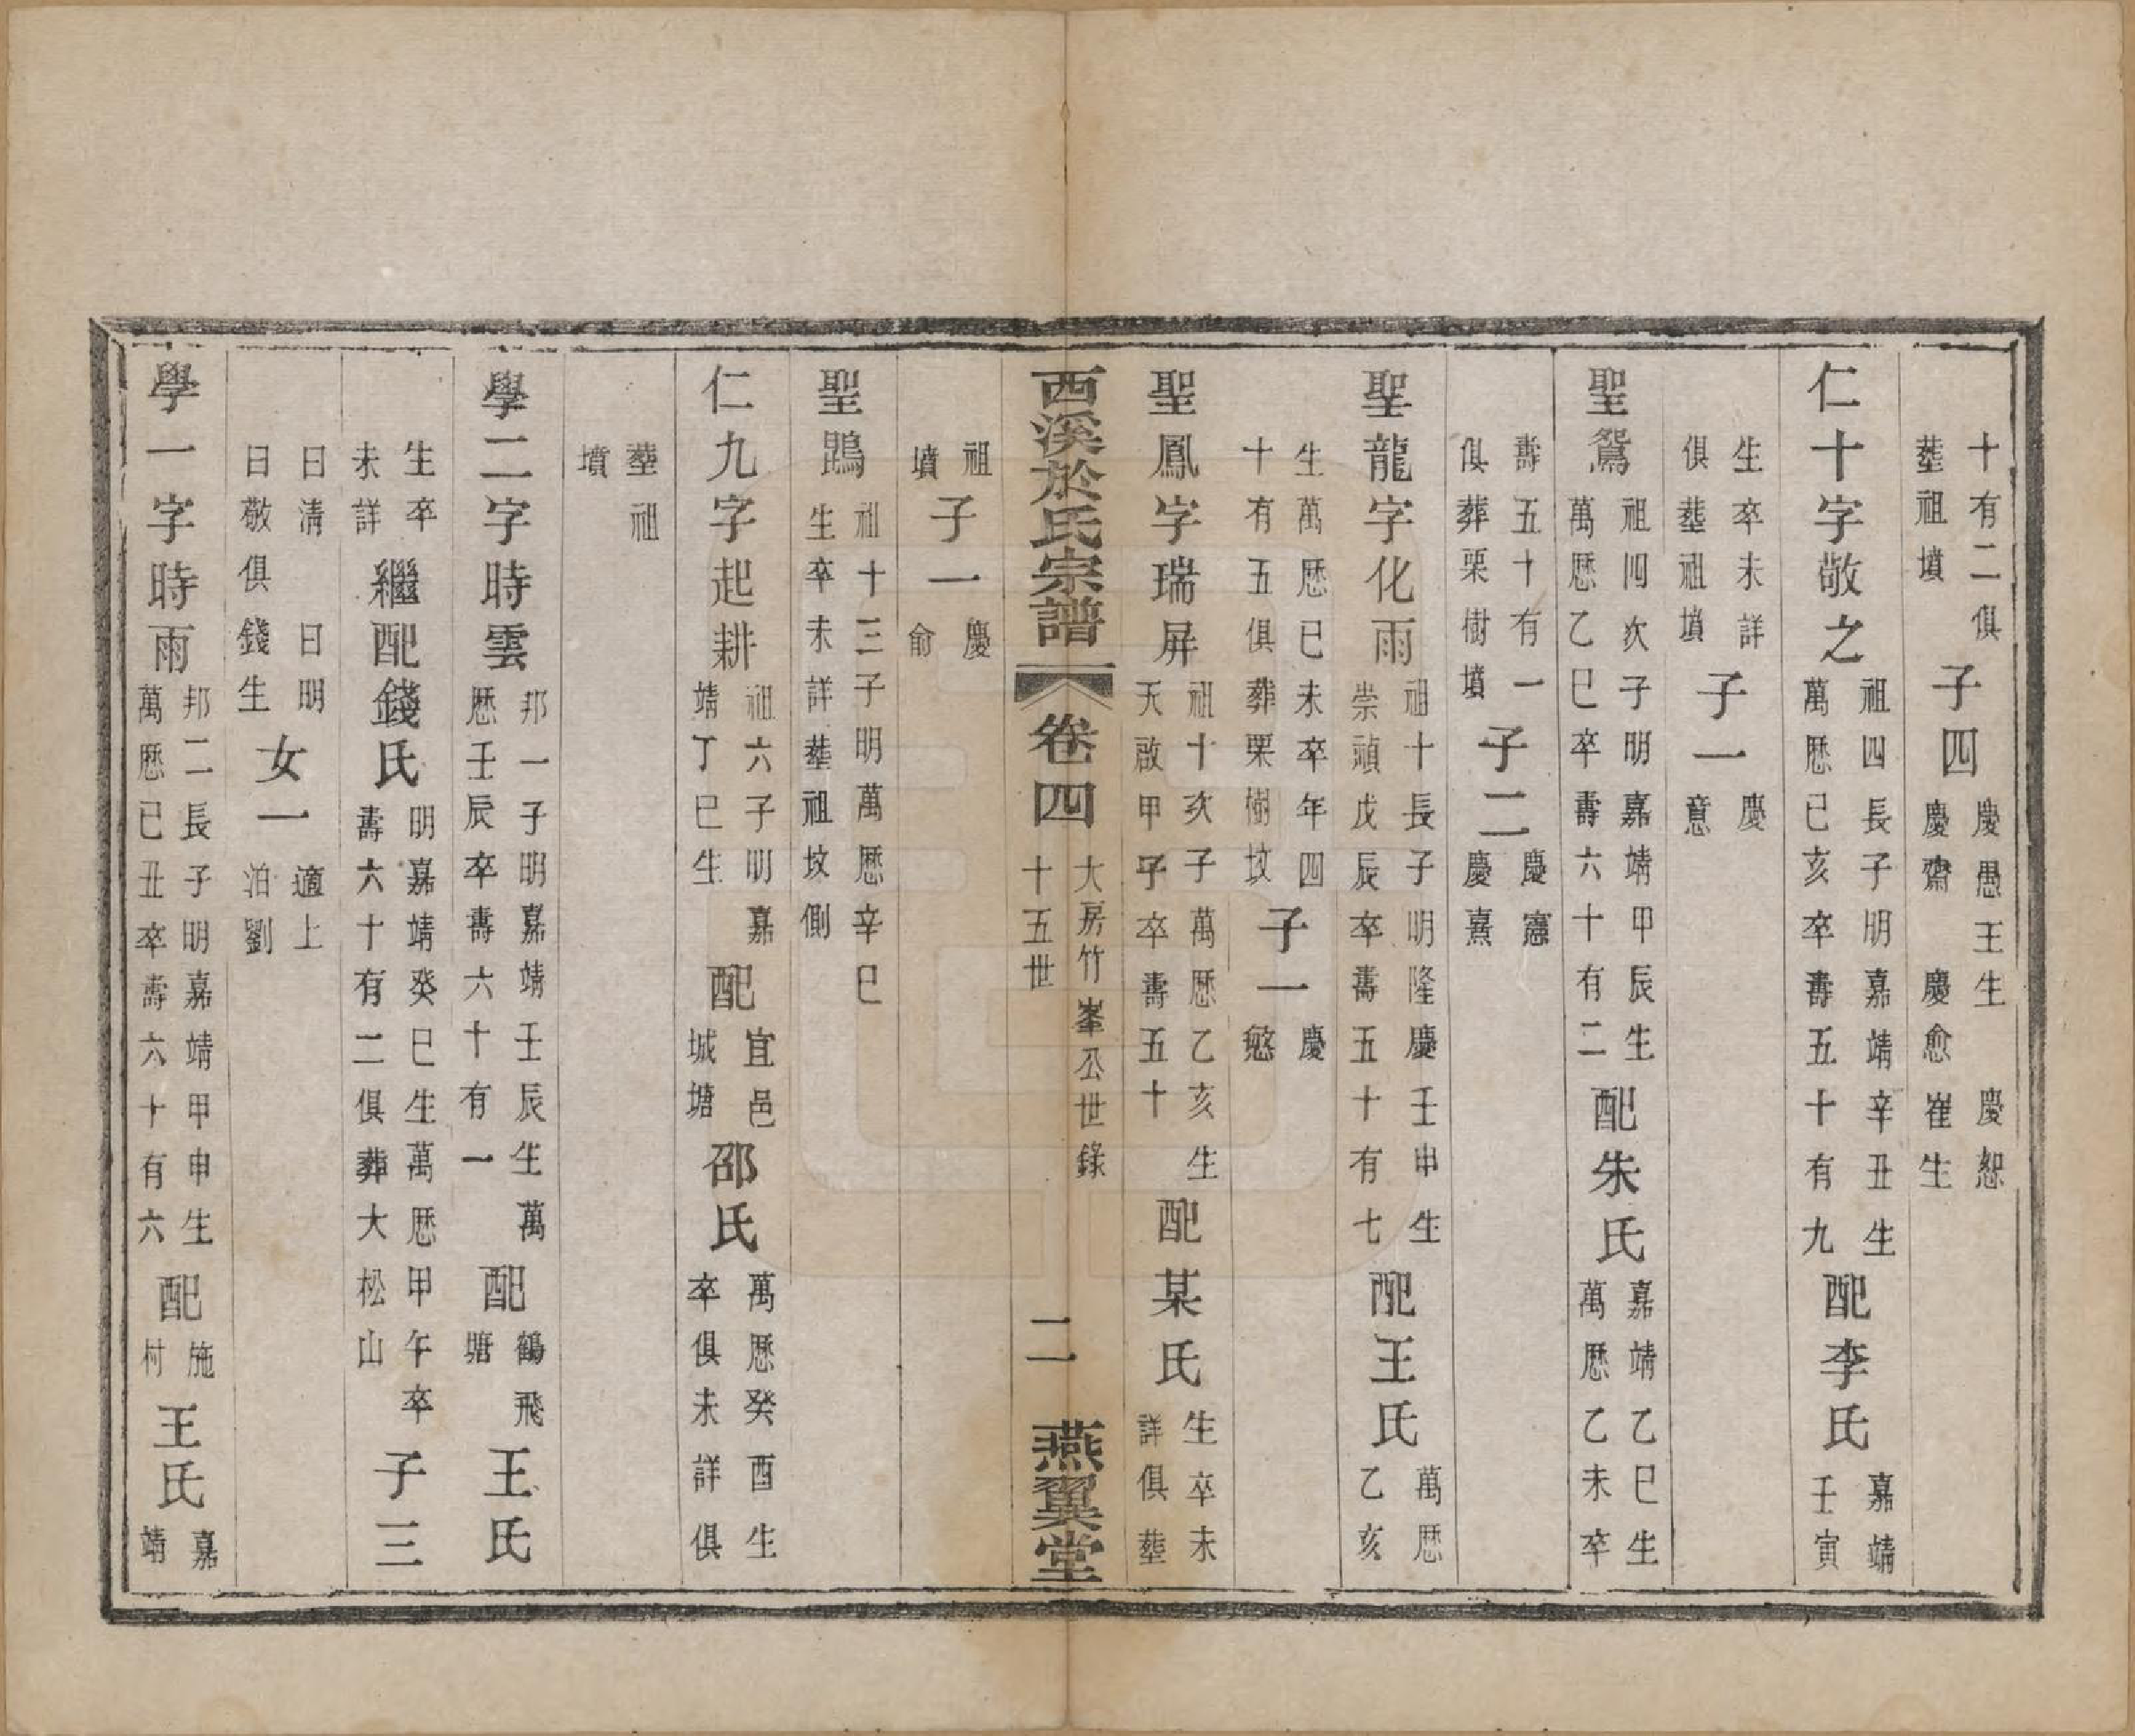 十有二俱
塟祖墳
子四
慶愚王生 慶恕
慶齋 慶愈崔生
仁十字敬之
祖四長子明嘉靖辛丑生
萬厯己亥卒壽五十有九
配李氏
嘉靖
壬寅
生卒未詳
俱塟祖墳
子一
慶
意
聖鴛
祖四次子明嘉靖甲辰生
萬厯乙巳卒壽六十有二
配朱氏
嘉靖乙巳生
萬厯乙未卒
壽五十有一
俱葬栗樹墳
子二
慶憲
慶熹
聖龍字化雨
祖十長子明隆慶壬申生
崇禎戊辰卒壽五十有七
配王氏
萬厯
乙亥
生萬厯己未卒年四
十有五俱葬栗樹坟
子一
慶
慜
聖鳳字瑞屏
祖十次子萬厯乙亥生
天啟甲子卒壽五十
配某氏
生卒未
詳俱塟
西溪於氏宗譜 卷四
大房竹峯公世錄
十五世
二
燕翼堂
祖
墳
子一
慶
俞
聖鵾
祖十三子明萬厯辛巳
生卒未詳塟祖坟側
仁九字起耕
祖六子明嘉
靖丁巳生
配
宜邑
城塘
邵氏
萬厯癸酉生
卒俱未詳俱
塟祖
墳
學二字時雲
邦一子明嘉靖壬辰生萬
厯壬辰卒壽六十有一
配
鶴飛
塘
王氏
生卒
未詳
繼配錢氏
明嘉靖癸巳生萬厯甲午卒
壽六十有二俱葬大松山
子三
曰清 曰明
曰敬俱錢生
女一
適上
泊劉
學一字時雨
邦二長子明嘉靖甲申生
萬厯己丑卒壽六十有六
配
施
村
王氏
嘉
靖